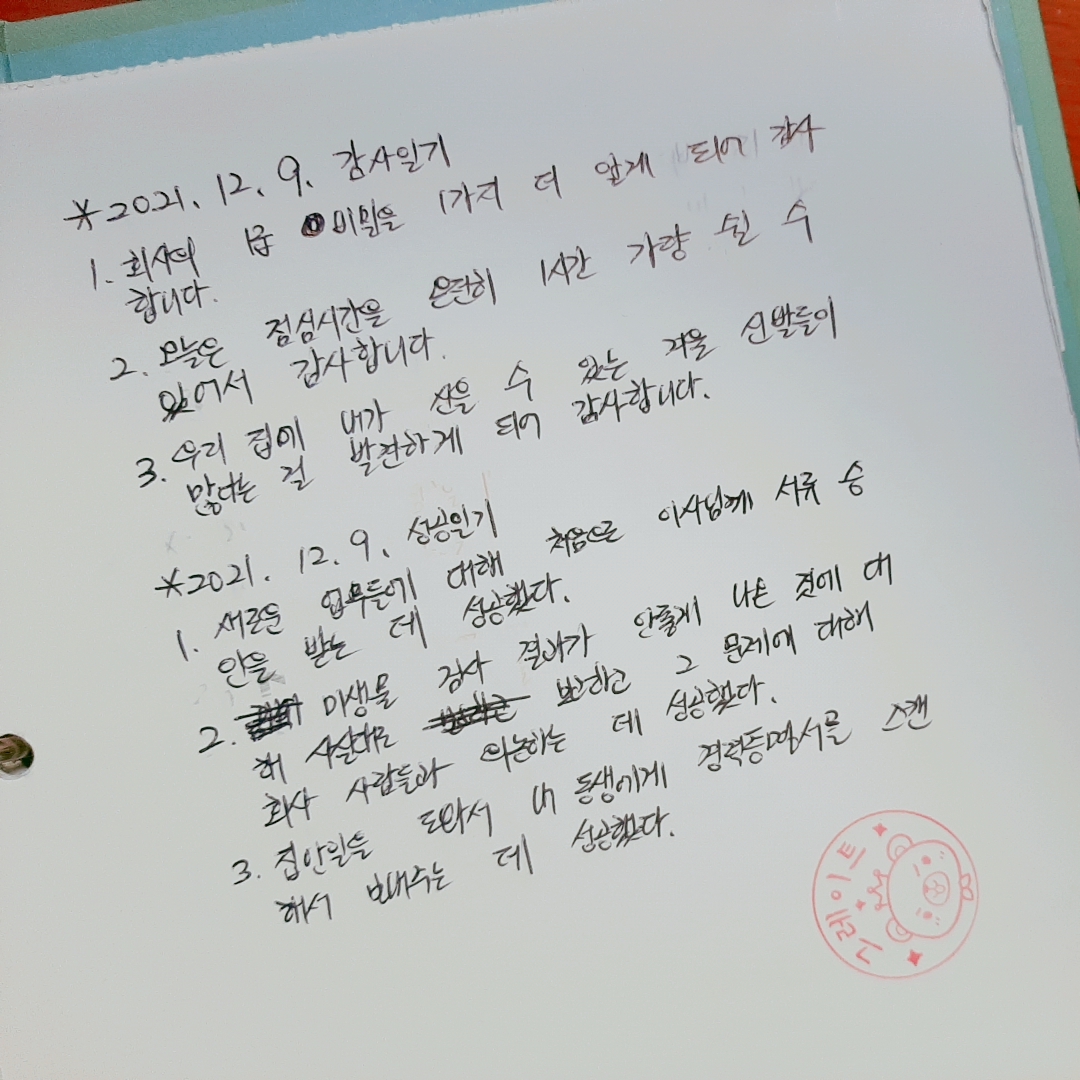 *2021. 12. 9. 감사일기
1. 회사의 1급 비밀을 1가지 더 알게 되어 감사
합니다.
2. 오늘은 점심시간을 온전히 1시간 가량 쉴 수
있어서 감사합니다.
3. 우리 집에 내가 신을 수 있는 겨울 신발들이
많다는 걸 발견하게 되어 감사합니다.
*2021. 12. 9. 성공일기
1. 새로운 업무들에 대해 처음으로 이사님께 서류 승
인을 받는 데 성공했다.
2. 미생물 검사 결과가 안좋게 나온 것에 대
해 사실대로 보고하고 그 문제에 대해
회사 사람들과 의논하는 데 성공했다.
3. 집안일을 도와서 내 동생에게 경력증명서를 스캔
해서 보내주는 데 성공했다.
그레이트